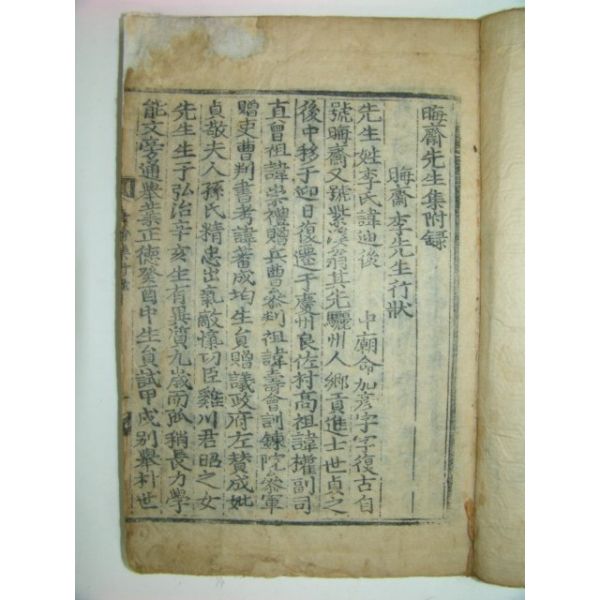 晦齋先生集附錄
晦齋李先生行狀
先生姓李氏諱迪後 中廟命加彦字字復古自
號晦齋又號紫溪翁其先驪州人鄕貢進士世貞之
後中移于迎日復遷于慶州良佐村高祖諱權副司
直曾祖諱崇禮贈兵曹參判祖諱壽會訓鍊院參軍
贈吏曹判書考諱蕃成均生員贈議政府左贊成妣
貞敬夫人孫氏精忠出氣敵愾功臣雞川君昭之女
先生生于弘治辛亥生有異質九歲而孤稍長力學
能文旁通擧業正德癸酉中生員試甲戌別擧村世